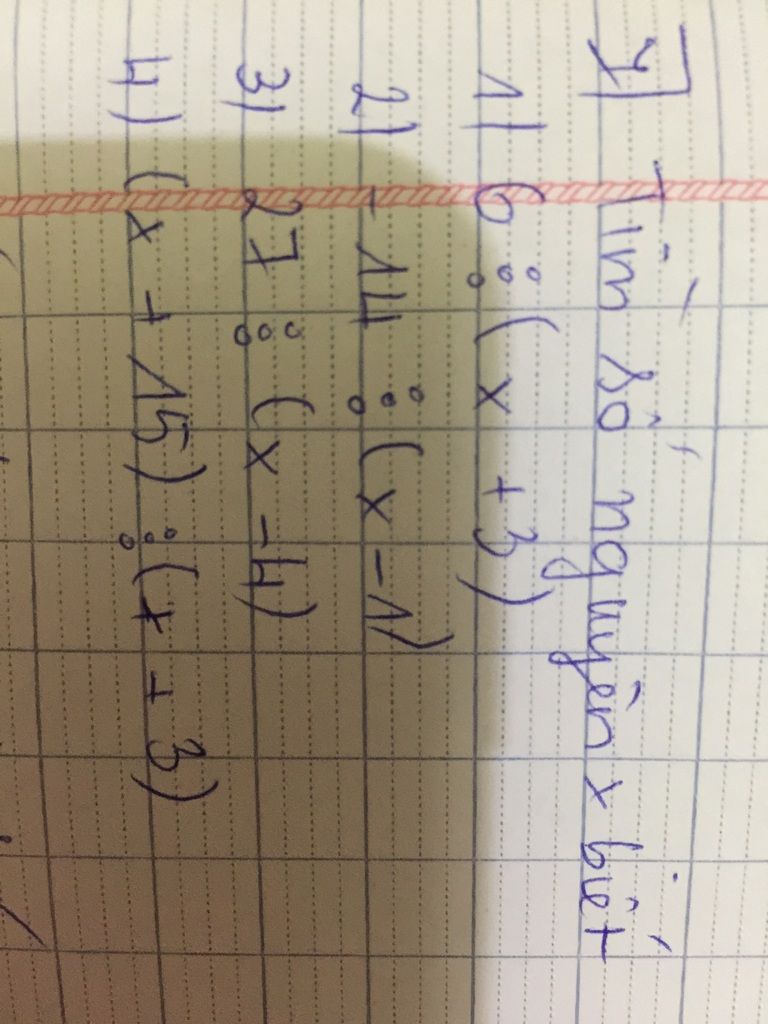 I] Tìm số nguyên x biết
1) 6 ⋮ (x + 3)
2) -14 ⋮ (x - 1)
3) 27 ⋮ (x - 4)
4) (x + 15) ⋮ (x + 3)